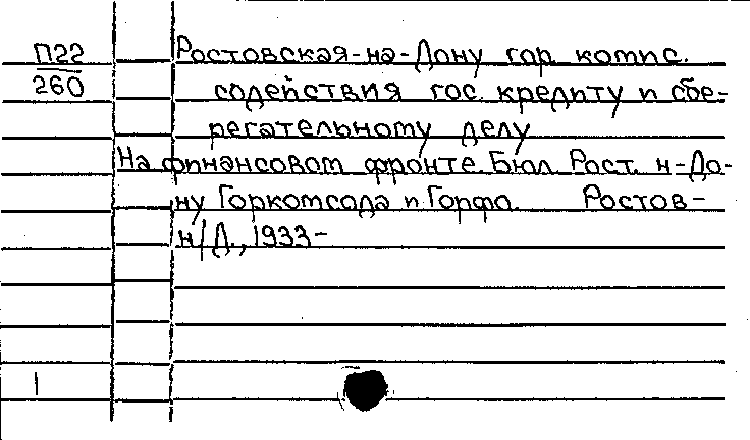 П22 Ростовская-на-Дону гор. комис.
260 содействия гос. кредиту и сбе-
регательному делу
На финансовом фронте. Бюл. Рост. н-До-
ну Горкомсода и Горфо. Ростов-
н/Д., 1933-
1